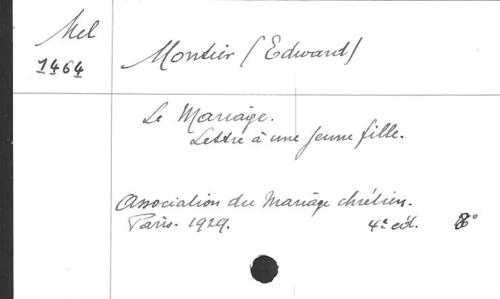 Mel
1464
Montier (Edward)
Le Mariage.
Lettre à une jeune fille.
Association du Mariage chrétien.
Paris. 1929. 4e éd. 8°